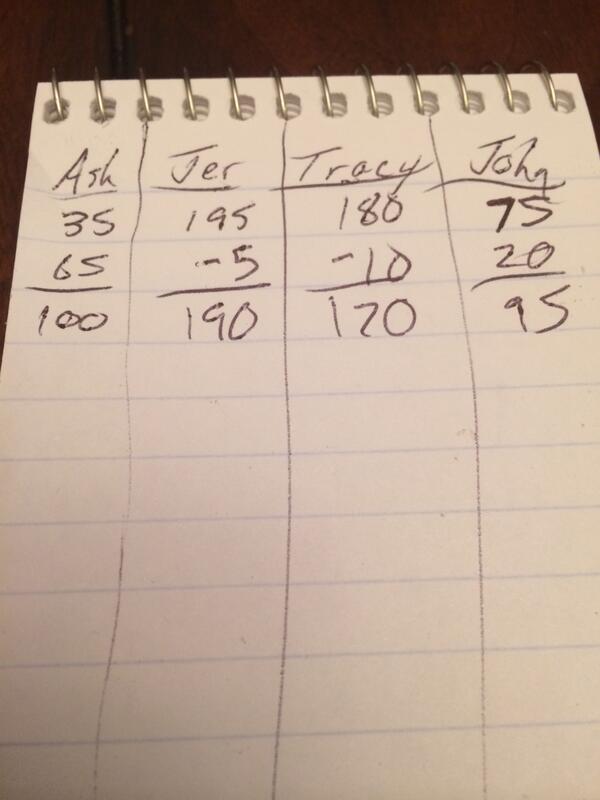 Ash Jer Tracy John
35 195 180 75
65 -5 -10 20
100 190 170 95